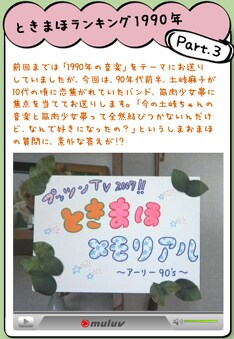 ときまほランキング1990年
Part.3
前回までは「1990年の音楽」をテーマにお送り
していましたが、今回は、90年代前半、土岐麻子が
10代の頃に恋焦がれていたバンド、筋肉少女帯に
焦点を当ててお送りします。「今の土岐ちゃんの
音楽と筋肉少女帯って全然結びつかないんだけ
ど、なんで好きになったの？」というしまおまほ
の質問に、意外な答えが!?
プッツンTV 2007!!
ときまほ
メモリアル
〜アーリー90's〜
muluv